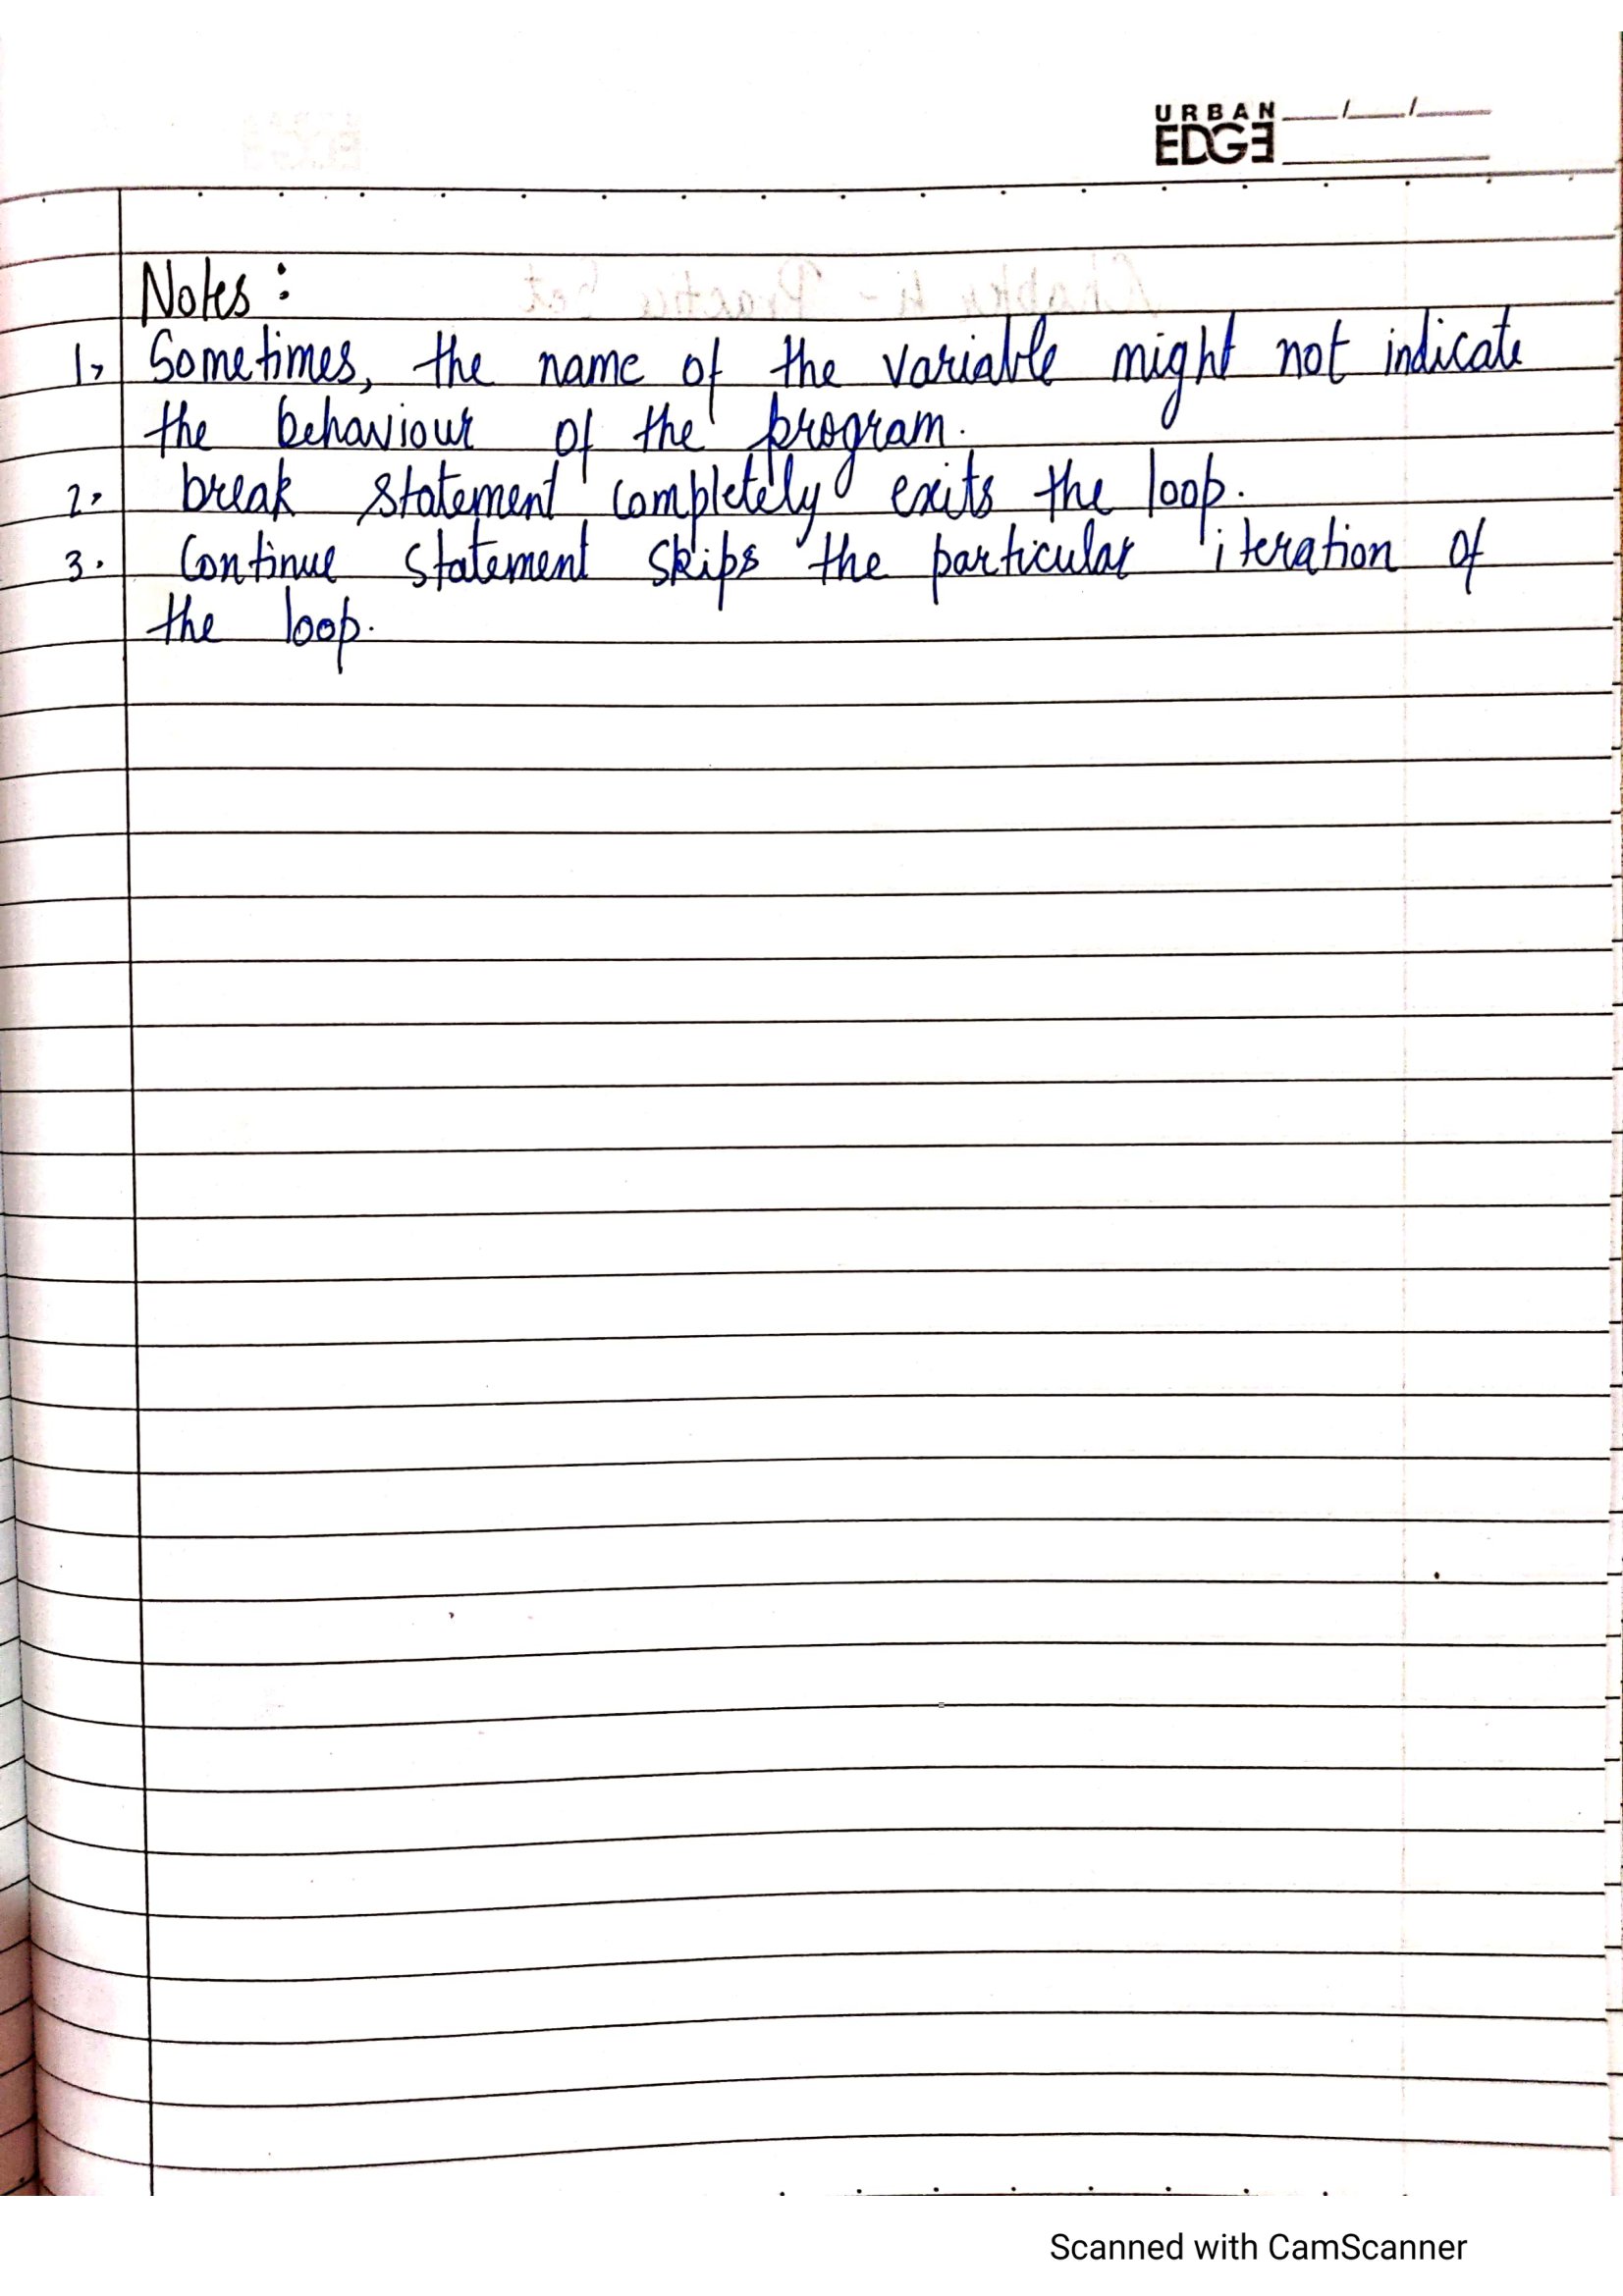 URBAN
EDGE
Notes :
1, Sometimes, the name of the variable might not indicate
the behaviour of the program.
2. break statement completely exits the loop.
3. Continue statement skips the particular iteration of
the loop.
Scanned with CamScanner